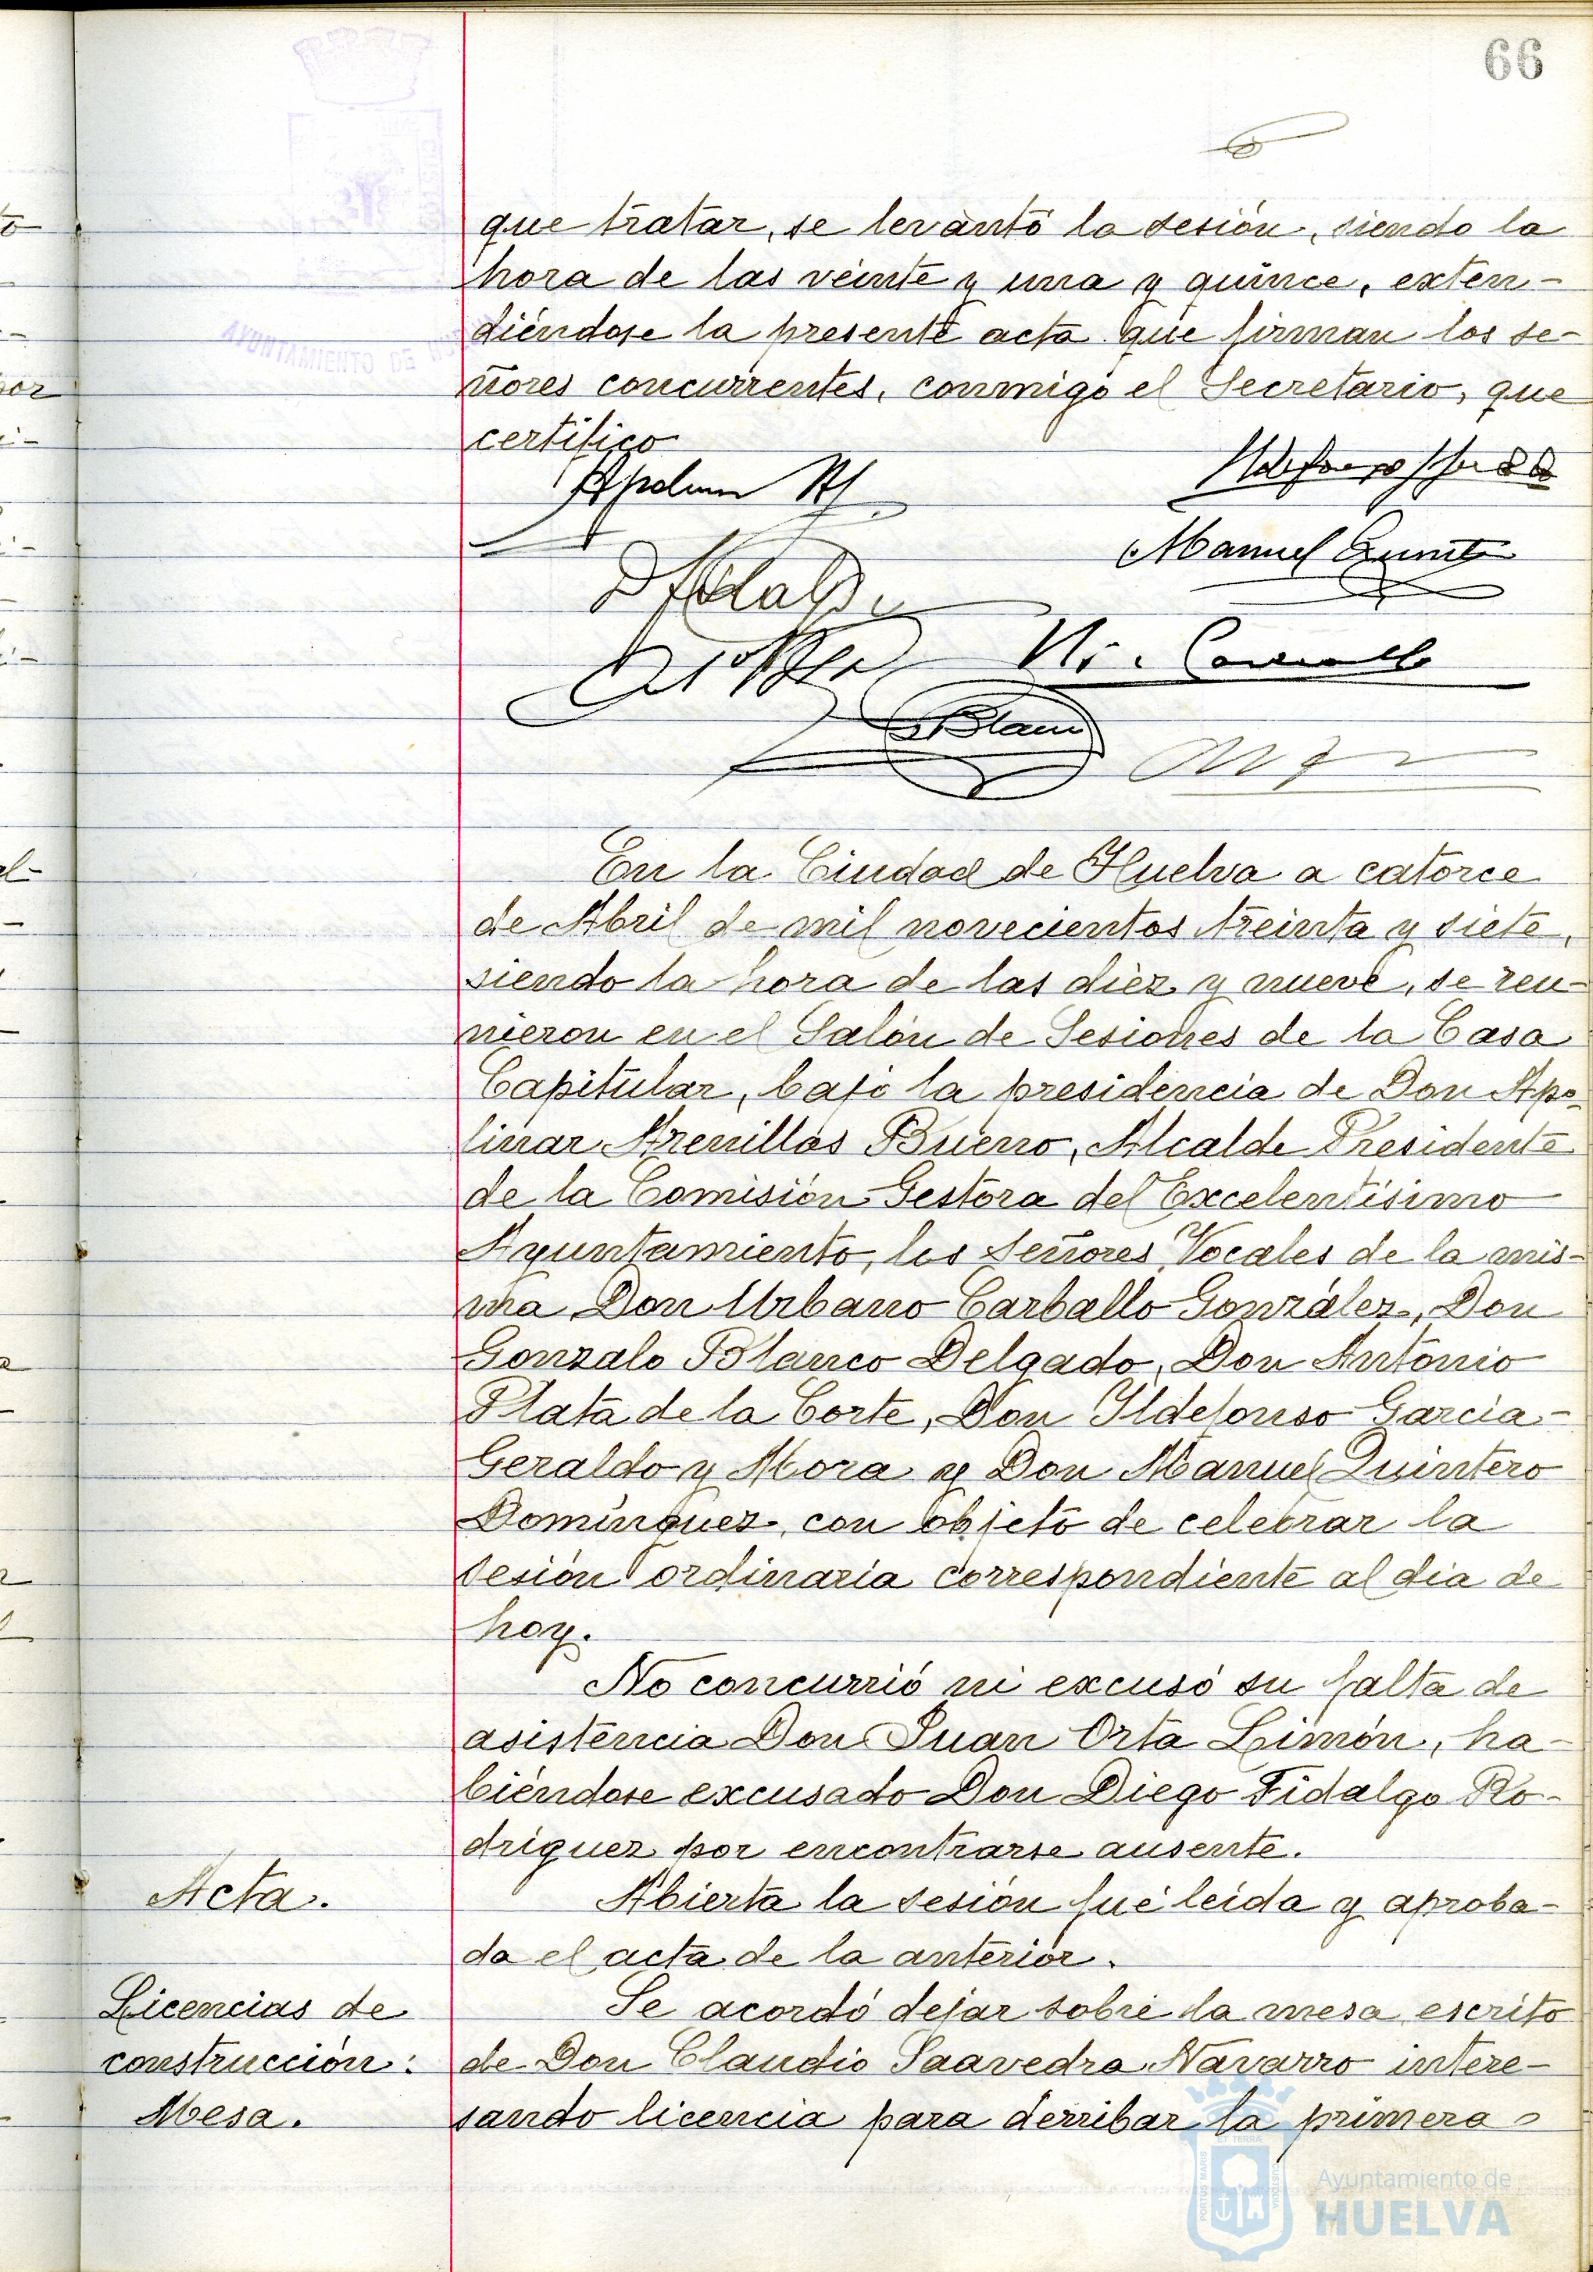 66
que tratar, se levantó la sesión, siendo la
hora de las veinte y una y quince, exten-
diéndose la presente acta que firman los se-
ñores concurrentes, conmigo el Secretario, que
certifico
Manuel Quinte
Blanco
En la Ciudad de Huelva a catorce
de Abril de mil novecientos treinta y siete,
siendo la hora de las diez y nueve, se reu-
nieron en el Salón de Sesiones de la Casa
Capitular, bajo la presidencia de Don Apo-
linar Arenillas Bueno, Alcalde Presidente
de la Comisión Gestora del Excelentísimo
Ayuntamiento, los Señores Vocales de la mis-
ma Don Urbano Carballo González, Don
Gonzalo Blanco Delgado, Don Antonio
Plata de la Corte, Don Ildefonso García-
Geraldo y Mora y Don Manuel Quintero
Domínguez, con objeto de celebrar la
sesión ordinaria correspondiente al dia de
hoy.
No concurrió ni excusó su falta de
asistencia Don Juan Orta Limón, ha-
biéndose excusado Don Diego Fidalgo Ro-
driguez por encontrarse ausente.
Acta.
Abierta la sesión fué leida y aproba-
da el acta de la anterior.
Licencias de
construcción:
Mesa.
Se acordó dejar sobre la mesa escrito
de Don Claudio Saavedra Navarro intere-
sando licencia para derribar la primera
AYUNTAMIENTO DE
Ayuntamiento de
HUELVA